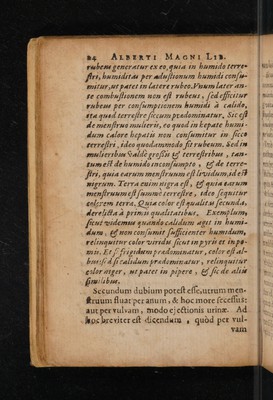 24 ALBERTI MAGNI LIB.
rubens generatur ex eo, quia in humido terre-
stri, humiditas per adustionem humidi consu-
mitur, ut patet in latere rubeo. Vnum later an-
te combustionem non est rubens, sed efficitur
rubens per consumptionem humidi à calido,
ita quod terrestre siccum prædominatur, Sic est
de menstruo mulieris, eo quod in hepate humi-
dum calore hepatis non consumitur in sicco
terrestri, ideo quodammodo fit rubeum. Sed in
mulieribus valde grossis & terrestribus, tan-
tum est de humido inconsumpto, & de terre-
stri, quia earum menstruum est liuidum, id est
nigrum. Terra enim nigra est, & quia earum
menstruum est summè terrestre, ideo sequitur
colorem terra. Quia color est qualitas secunda,
derelicta à primis qualitatibus, Exemplum,
sicut videmus quando calidum agit in humi-
dum, & non consumit sufficienter humidum,
relinquitur color viridis sicut in pyris et in po-
mis. Et si frigidum prædominatur, color est al-
bus: sed si calidum prædominatur, relinquitur
color niger, ut patet in pipere, & sic de aliis
similibus.
Secundum dubium potest esse, utrum men-
struum fluat per anum, & hoc more secessus:
aut per vulvam, modo ejectionis urinæ. Ad
hoc breviter est dicendum, quòd per vul-
vam